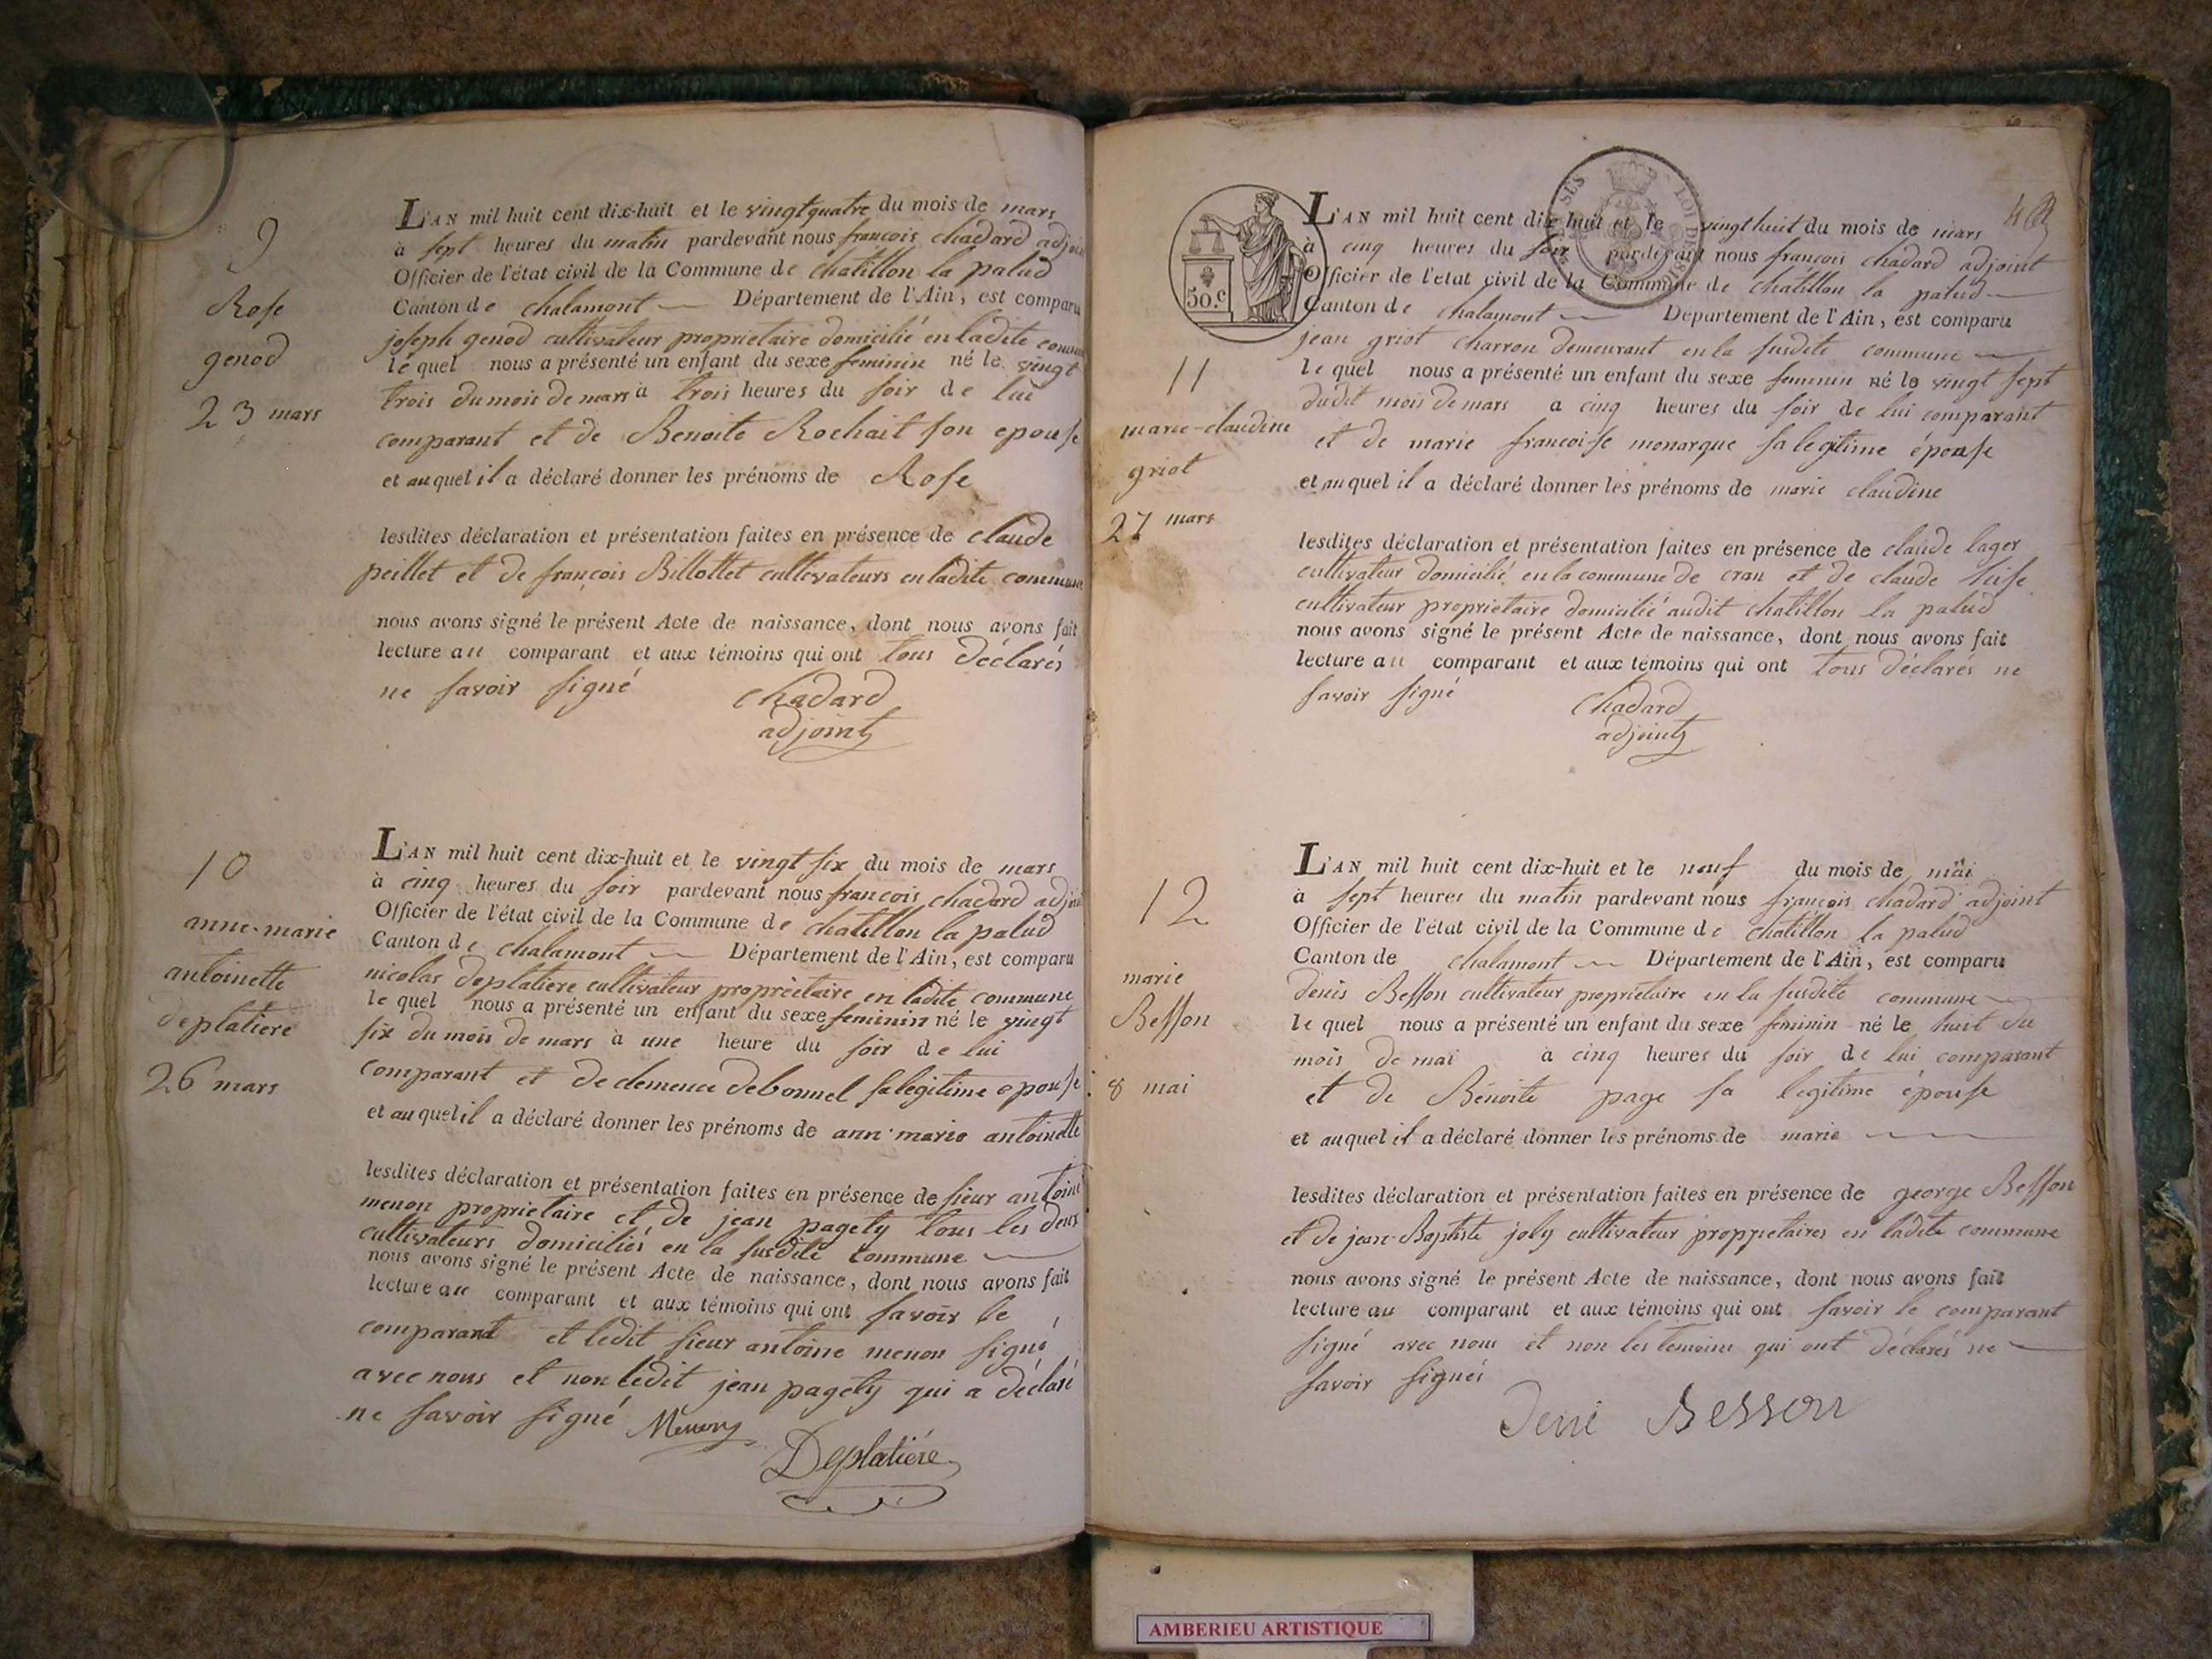 9
Rose
genod
23 mars
L'AN mil huit cent dix-huit et le vingt quatre du mois de mars
à sept heures du matin pardevant nous françois chadard adjoin
Officier de l'état civil de la Commune de chatillon la palud
Canton de chalamont Département de l'Ain, est comparu
joseph genod cultivateur proprietaire domicilié en ladite comm
le quel nous a présenté un enfant du sexe feminin né le vingt
trois du mois de mars à trois heures du soir de lui
comparant et de Benoite Rochait son epouse
et auquel il a déclaré donner les prénoms de Rose
lesdites déclaration et présentation faites en présence de claude
peillet et de françois Billottet cultivateurs en ladite commune
nous avons signé le présent Acte de naissance, dont nous avons fait
lecture au comparant et aux témoins qui ont tous déclarés
ne savoir signé
chadard
adjoint
10
anne-marie
antoinette
deplatiere
26 mars
L'AN mil huit cent dix-huit et le vingt six du mois de mars
à cinq heures du soir pardevant nous françois chadard adjoi
Officier de l'état civil de la Commune de chatillon la palud
Canton de chalamont Département de l'Ain, est comparu
nicolas deplatiere cultivateur propriétaire en ladite commune
le quel nous a présenté un enfant du sexe feminin né le vingt
six du mois de mars à une heure du soir de lui
comparant et de clemence debonnel sa legitime epouse
et auquel il a déclaré donner les prénoms de ann marie antoinette
lesdites déclaration et présentation faites en présence de sieur antoine
menon proprietaire et de jean pagety tous les deux
cultivateurs domiciliés en la susdite commune
nous avons signé le présent Acte de naissance, dont nous avons fait
lecture au comparant et aux témoins qui ont savoir le
comparant et ledit sieur antoine menon signé
avec nous et non ledit jean pagety qui a déclaré
ne savoir signé
Deplatiére
50.c
L'AN mil huit cent dix huit et le vingt huit du mois de mars
à cinq heures du soir pardevant nous françois chadard adjoint
Officier de l'etat civil de la Commune de chatillon la palud
Canton de chalamont Département de l'Ain, est comparu
jean griot charron demeurant en la susdite commune
le quel nous a présenté un enfant du sexe feminin né le vingt sept
dudit mois de mars a cinq heures du soir de lui comparant
et de marie françoise monarque sa legitime épouse
et auquel il a déclaré donner les prénoms de marie claudine
11
marie-claudine
griot
27 mars
lesdites déclaration et présentation faites en présence de claude lager
cultivateur domicilié en la commune de cran et de claude
cultivateur proprietaire domicilié audit chatillon la palud
nous avons signé le présent Acte de naissance, dont nous avons fait
lecture au comparant et aux témoins qui ont tous déclarés ne
savoir signé
Chadard
adjoint
12
marie
Besson
8 mai
L'AN mil huit cent dix-huit et le neuf du mois de mai
à sept heures du matin pardevant nous françois chadard adjoint
Officier de l'état civil de la Commune de chatillon la palud
Canton de chalamont Département de l'Ain, est comparu
denis Besson cultivateur proprietaire en la susdite commune
le quel nous a présenté un enfant du sexe feminin né le huit du
mois de mai à cinq heures du soir de lui comparant
et de Bénoite page sa legitime épouse
et auquel il a déclaré donner les prénoms de marie
lesdites déclaration et présentation faites en présence de george Besson
et de jean-Baptiste joly cultivateur propprietaires en ladite commune
nous avons signé le présent Acte de naissance, dont nous avons fait
lecture au comparant et aux témoins qui ont savoir le comparant
signé avec nous et non les temoins qui ont déclarés ne
savoir signés
Deni Besson
AMBERIEU ARTISTIQUE